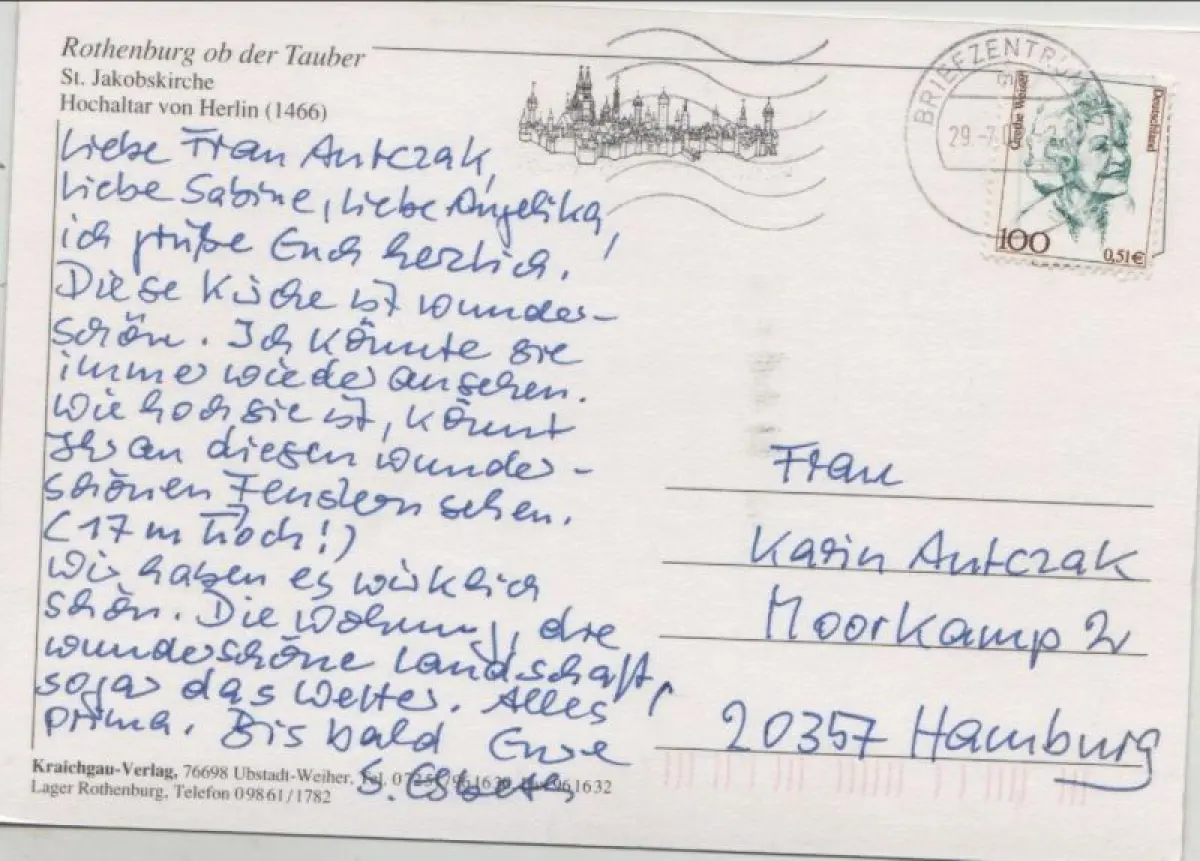 Rothenburg ob der Tauber
St. Jakobskirche
Hochaltar von Herlin (1466)
Liebe Frau Antczak,
liebe Sabine, liebe Angelika,
ich grüße Euch herzlich!
Diese Kirche ist wunder-
schön. Ich könnte sie
immer wieder ansehen.
Wie hoch sie ist, könnt
Ihr an diesen wunder-
schönen Fenstern sehen.
(17 m hoch!)
Wir haben es wirklich
schön. Die Wohnung, die
wunderschöne Landschaft,
sogar das Wetter. Alles
prima. Bis bald Eure
S.
Kraichgau-Verlag, 76698 Ubstadt-Weiher, Tel.
Lager Rothenburg, Telefon 09861/1782
BRIEFZENTRUM
29.-7.
Grethe Weiser
Deutschland
100
0,51€
Frau
Karin Antczak
Moorkamp 2
20357 Hamburg